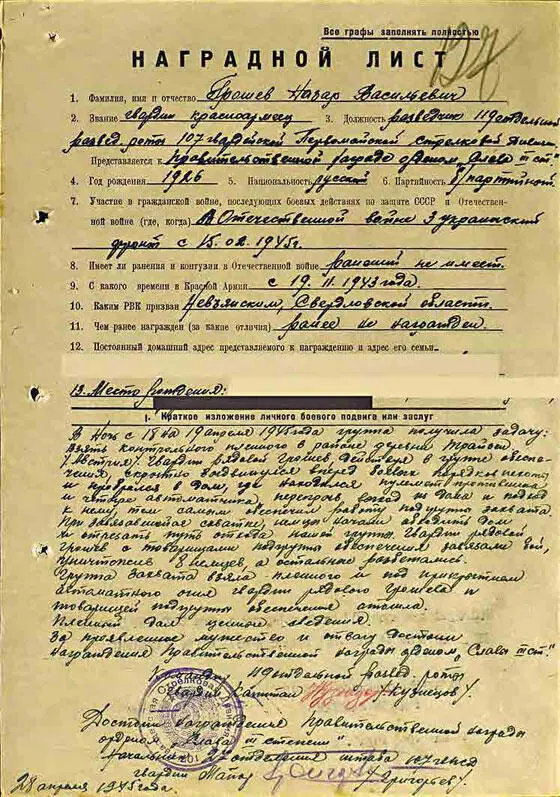 Все графы заполнять полностью
127
НАГРАДНОЙ ЛИСТ
1. Фамилия, имя и отчество Грошев Назар Васильевич
2. Звание гвардии красноармеец 3. Должность разведчик 119 отдельной
развед. роты 107 гвардейской Первомайской стрелковой дивизии
Представляется к правительственной награде орденом „Слава III ст"
4. Год рождения 1926 5. Национальность русский 6. Партийность б/партийный
7. Участие в гражданской войне, последующих боевых действиях по защите СССР и Отечествен-
ной войне (где, когда) В Отечественной войне 3 украинский
фронт с 15.02.1945г.
8. Имеет ли ранения и контузии в Отечественной войне ранений не имеет.
9. С какого времени в Красной Армии с 19.11.1943 года.
10. Каким РВК призван Невьянским, Свердловской области.
11. Чем ранее награжден (за какие отличия) ранее не награжден.
12. Постоянный домашний адрес представляемого к награждению и адрес его семьи
13. Место рождения:
I. Краткое изложение личного боевого подвига или заслуг
В ночь с 18 на 19 апреля 1945 года группа получила задачу:
взять контрольного пленного в районе деревни Трайсп
/Австрия/. Гвардии рядовой Грошев, действуя в группе обеспе-
чения скрытно выдвинулся вперед боевых порядков пехоты
и пробрался в дом, где находился пулемет противника
и четыре автоматчика, перегорев, вход из дома и подход
к нему, тем самым обеспечил работу подгруппы захвата.
При завязавшейся схватке, немцы начали обходить дом
и отрезать путь отхода нашей группы. Гвардии рядовой
Грошев с товарищами подгруппы обеспечения завязали бой,
уничтожив 8 немцев, а остальные разбежались.
Группа захвата взяла пленного и под прикрытием
автоматного огня гвардии рядового Грошева и
товарищей подгруппы обеспечения отошла.
Пленный дал ценные сведения.
За проявленное мужество и отвагу достоин
награждения правительственной награды орденом „Слава III ст"
Командир 119 отдельной развед. роты
гвардии капитан /Кузнецов/.
Достоин награждения правительственной награды
орденом „Слава III степени"
Начальник 2 отделения штаба 107 гвсд
гвардии майор /Григорьев/.
28 апреля 1945 года.